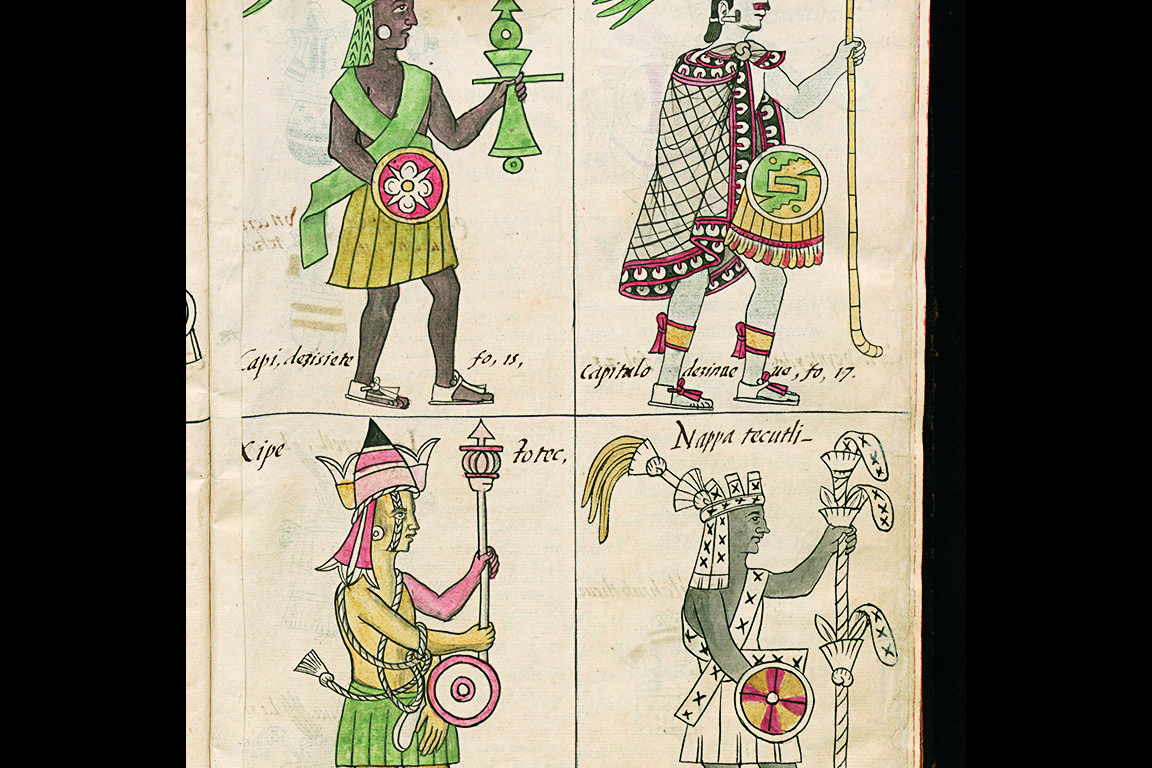 Capi, dezisiete fo, 15,
Capitulo dezinueue, fo, 17.
Xipe totec,
Nappa tecutli-